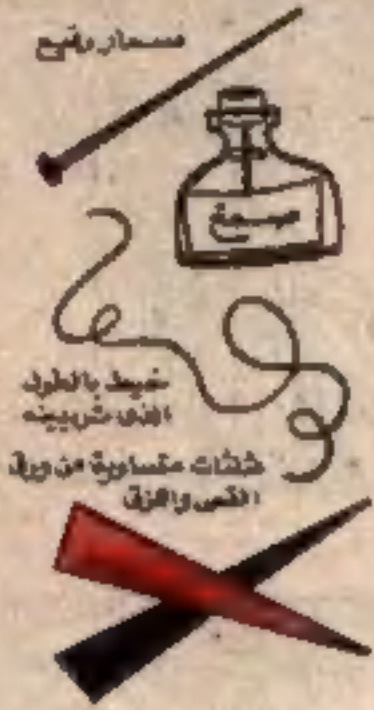 مسمار رفيع
صمغ
خيط بالطول
الذى تريدينه
مثلثات متساوية من ورق
القص واللزق